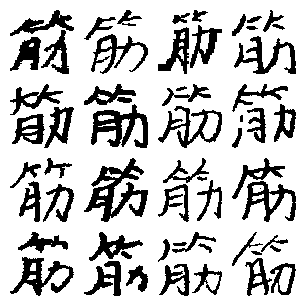 筋筋筋筋
筋筋筋筋
筋筋筋筋
筋筋筋筋